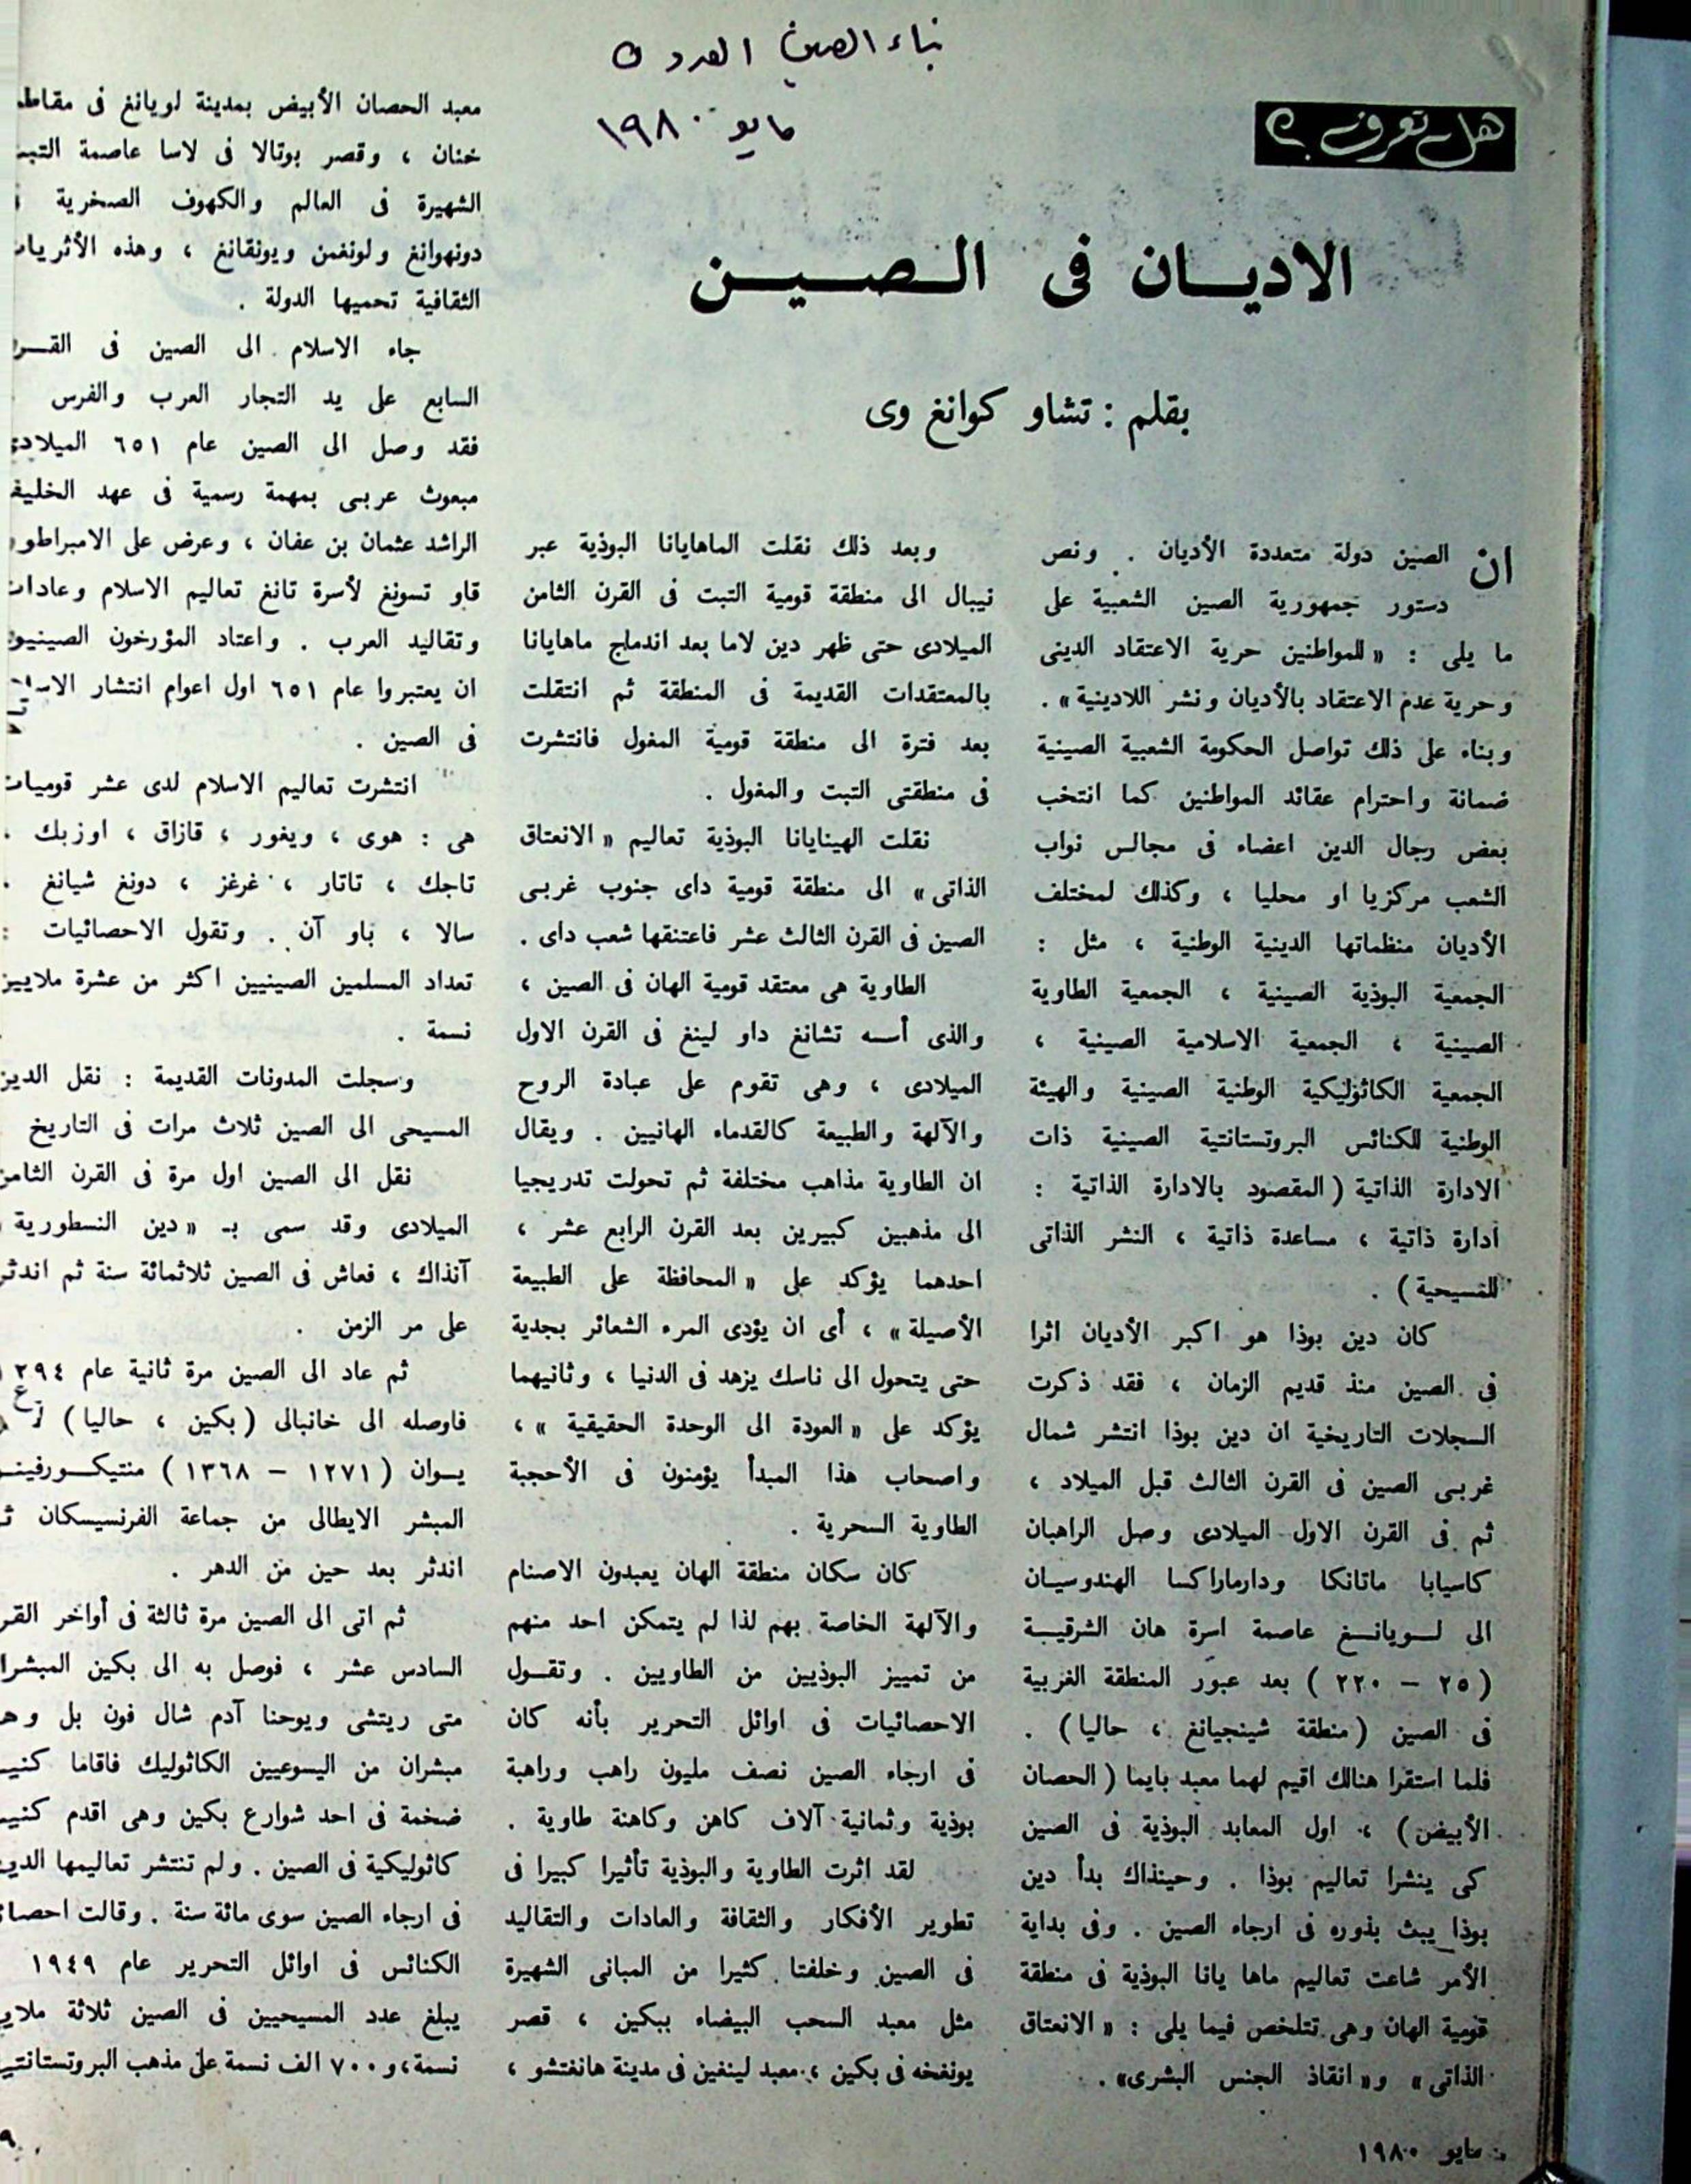 بناء الصين العدد ٥
مايو ١٩٨٠
هل تعرف ؟
الاديان فى الصين
بقلم : تشاو كوانغ وى
ان الصين دولة متعددة الأديان . ونص
دستور جمهورية الصين الشعبية على
ما يلى : « للمواطنين حرية الاعتقاد الدينى
وحرية عدم الاعتقاد بالأديان ونشر اللادينية » .
وبناء على ذلك تواصل الحكومة الشعبية الصينية
ضمانة واحترام عقائد المواطنين كما انتخب
بعض رجال الدين اعضاء فى مجالس نواب
الشعب مركزيا او محليا ، وكذلك لمختلف
الأديان منظماتها الدينية الوطنية ، مثل :
الجمعية البوذية الصينية ، الجمعية الطاوية
الصينية ، الجمعية الاسلامية الصينية ،
الجمعية الكاثوليكية الوطنية الصينية والهيئة
الوطنية للكنائس البروتستانتية الصينية ذات
الادارة الذاتية ( المقصود بالادارة الذاتية :
ادارة ذاتية ، مساعدة ذاتية ، النشر الذاتى
للمسيحية ) .
كان دين بوذا هو اكبر الأديان اثرا
فى الصين منذ قديم الزمان ، فقد ذكرت
السجلات التاريخية ان دين بوذا انتشر شمال
غربى الصين فى القرن الثالث قبل الميلاد ،
ثم فى القرن الاول الميلادى وصل الراهبان
كاسيابا ماتانكا ودارماراكسا الهندوسيان
الى لويانغ عاصمة اسرة هان الشرقية
( ٢٥ – ٢٢٠ ) بعد عبور المنطقة الغربية
فى الصين ( منطقة شينجيانغ ، حاليا ) .
فلما استقرا هنالك اقيم لهما معبد بايما ( الحصان
الأبيض ) ، اول المعابد البوذية فى الصين
كى ينشرا تعاليم بوذا . وحينذاك بدأ دين
بوذا يبث بذوره فى ارجاء الصين . وفى بداية
الأمر شاعت تعاليم ماها يانا البوذية فى منطقة
قومية الهان وهى تتلخص فيما يلى : « الانعتاق
الذاتى » و« انقاذ الجنس البشرى» .
وبعد ذلك نقلت الماهايانا البوذية عبر
نيبال الى منطقة قومية التبت فى القرن الثامن
الميلادى حتى ظهر دين لاما بعد اندماج ماهايانا
بالمعتقدات القديمة فى المنطقة ثم انتقلت
بعد فترة الى منطقة قومية المغول فانتشرت
فى منطقتى التبت والمغول .
نقلت الهينايانا البوذية تعاليم « الانعتاق
الذاتى » الى منطقة قومية داى جنوب غربى
الصين فى القرن الثالث عشر فاعتنقها شعب داى .
الطاوية هى معتقد قومية الهان فى الصين ،
والذى أسسه تشانغ داو لينغ فى القرن الاول
الميلادى ، وهى تقوم على عبادة الروح
والآلهة والطبيعة كالقدماء الهانيين . ويقال
ان الطاوية مذاهب مختلفة ثم تحولت تدريجيا
الى مذهبين كبيرين بعد القرن الرابع عشر ،
احدهما يؤكد على « المحافظة على الطبيعة
الأصيلة » ، أى ان يؤدى المرء الشعائر بجدية
حتى يتحول الى ناسك يزهد فى الدنيا ، وثانيهما
يؤكد على « العودة الى الوحدة الحقيقية » ،
واصحاب هذا المبدأ يؤمنون فى الأحجبة
الطاوية السحرية .
كان سكان منطقة الهان يعبدون الاصنام
والآلهة الخاصة بهم لذا لم يتمكن احد منهم
من تمييز البوذيين من الطاويين . وتقول
الاحصائيات فى اوائل التحرير بأنه كان
فى ارجاء الصين نصف مليون راهب وراهبة
بوذية وثمانية آلاف كاهن وكاهنة طاوية .
لقد اثرت الطاوية والبوذية تأثيرا كبيرا فى
تطوير الأفكار والثقافة والعادات والتقاليد
فى الصين وخلفتا كثيرا من المبانى الشهيرة
مثل معبد السحب البيضاء ببكين ، قصر
يونغخه فى بكين ، معبد لينغين فى مدينة هانغتشو ،
معبد الحصان الأبيض بمدينة لويانغ فى مقاط
خنان ، وقصر بوتالا فى لاسا عاصمة التب
الشهيرة فى العالم والكهوف الصخرية
دونهوانغ ولونغمن ويونقانغ ، وهذه الأثريات
الثقافية تحميها الدولة .
جاء الاسلام الى الصين فى القر
السابع على يد التجار العرب والفرس
فقد وصل الى الصين عام ٦٥١ الميلادى
مبعوث عربى بمهمة رسمية فى عهد الخليف
الراشد عثمان بن عفان ، وعرض على الامبراطور
قاو تسونغ لأسرة تانغ تعاليم الاسلام وعادات
وتقاليد العرب . واعتاد المؤرخون الصينيون
ان يعتبروا عام ٦٥١ اول اعوام انتشار الاسلا
فى الصين .
انتشرت تعاليم الاسلام لدى عشر قوميات
هى : هوى ، ويغور ، قازاق ، اوزبك ،
تاجك ، تاتار ، غرغز ، دونغ شيانغ ،
سالا ، باو آن . وتقول الاحصائيات :
تعداد المسلمين الصينيين اكثر من عشرة ملايين
نسمة .
وسجلت المدونات القديمة : نقل الدين
المسيحى الى الصين ثلاث مرات فى التاريخ
نقل الى الصين اول مرة فى القرن الثامن
الميلادى وقد سمى بـ « دين النسطورية
آنذاك ، فعاش فى الصين ثلاثمائة سنة ثم اندثر
على مر الزمن .
ثم عاد الى الصين مرة ثانية عام ١٢٩٤
فاوصله الى خانبالى ( بكين ، حاليا )
يوان ( ١٢٧١ – ١٣٦٨ ) منتيكورفينو
المبشر الايطالى من جماعة الفرنسيسكان ثـ
اندثر بعد حين من الدهر .
ثم اتى الى الصين مرة ثالثة فى أواخر القر
السادس عشر ، فوصل به الى بكين المبشرا
متى ريتشى ويوحنا آدم شال فون بل وهـ
مبشران من اليسوعيين الكاثوليك فاقاما كنيـ
ضخمة فى احد شوارع بكين وهى اقدم كنيـ
كاثوليكية فى الصين . ولم تنتشر تعاليمها الديـ
فى ارجاء الصين سوى مائة سنة . وقالت احصا
الكنائس فى اوائل التحرير عام ١٩٤٩
يبلغ عدد المسيحيين فى الصين ثلاثة ملاي
نسمة ، و ٧٠٠ الف نسمة على مذهب البروتستانتيـ
مايو ١٩٨٠
٩